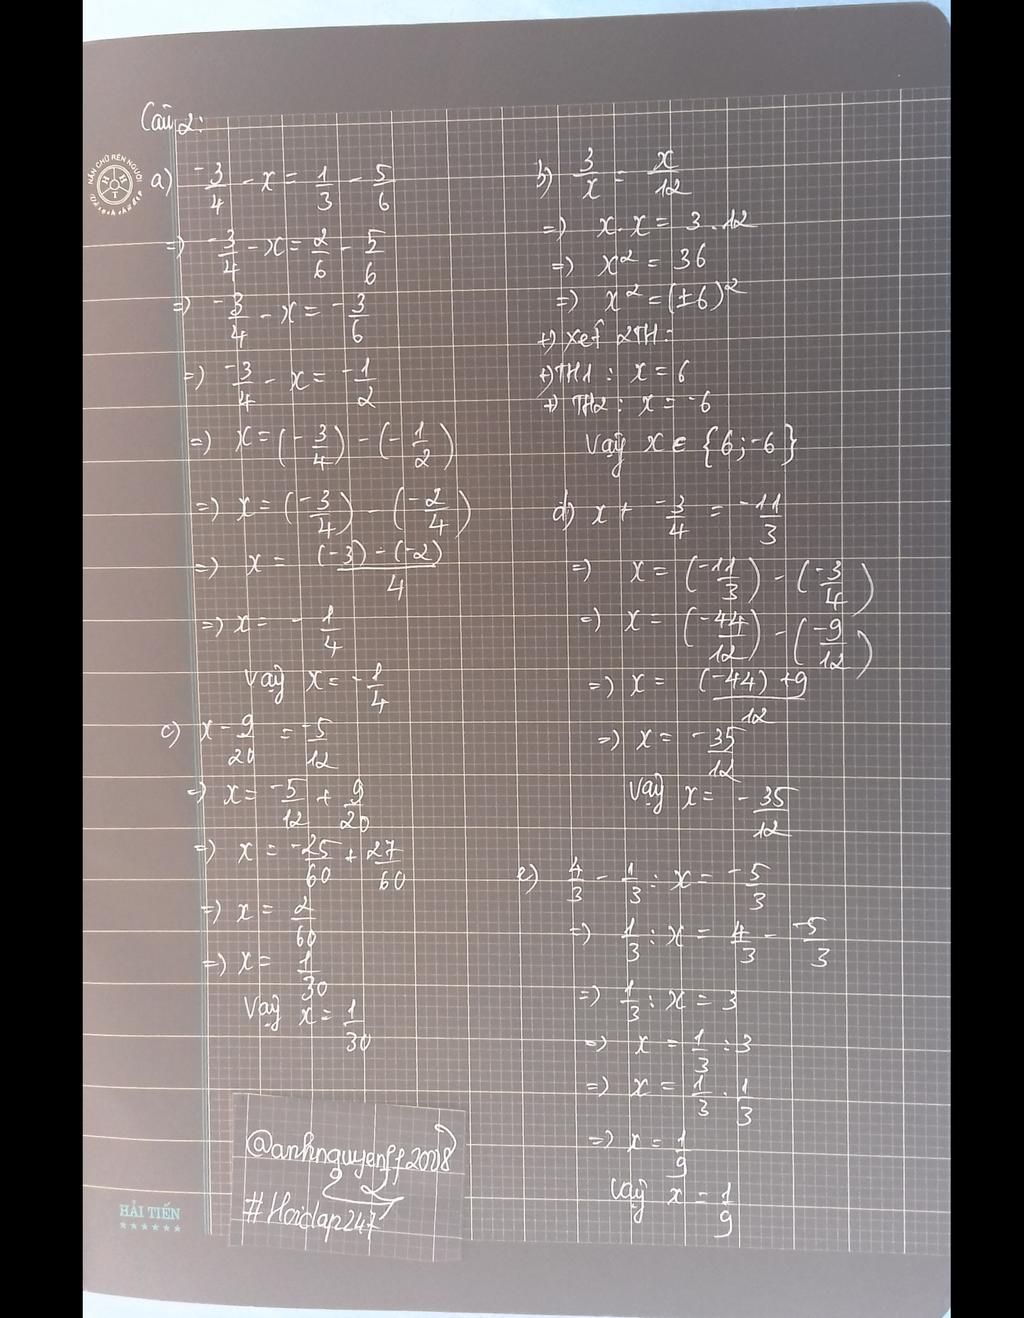 Câu 2:
a) -3/4 - x = 1/3 - 5/6
=) -3/4 - x = 2/6 - 5/6
=) -3/4 - x = -3/6
=) -3/4 - x = -1/2
=) x = (-3/4) - (-1/2)
=) x = (-3/4) - (-2/4)
=) x = (-3) - (-2)/4
=) x = - 1/4
Vậy x = -1/4
c) x - 9/20 = -5/12
=) x = -5/12 + 9/20
=) x = -25/60 + 27/60
=) x = 2/60
=) x = 1/30
Vậy x = 1/30
b) 3/x = x/12
=) x . x = 3 . 12
=) x² = 36
=) x² = (±6)²
+) Xét 2TH:
+) TH1 : x = 6
+) TH2 : x = -6
Vậy x ∈ {6 ; -6}
d) x + -3/4 = -11/3
=) x = (-11/3) - (-3/4)
=) x = (-44/12) - (-9/12)
=) x = (-44) + 9/12
=) x = -35/12
Vậy x = -35/12
e) 4/3 - 1/3 : x = -5/3
=) 1/3 : x = 4/3 - -5/3
=) 1/3 : x = 3
=) x = 1/3 : 3
=) x = 1/3 . 1/3
=) x = 1/9
Vậy x = 1/9
@anhnguyenff2008
#Hoidap247
NẮN CHỮ RÈN NGƯỜI
HẢI TIẾN